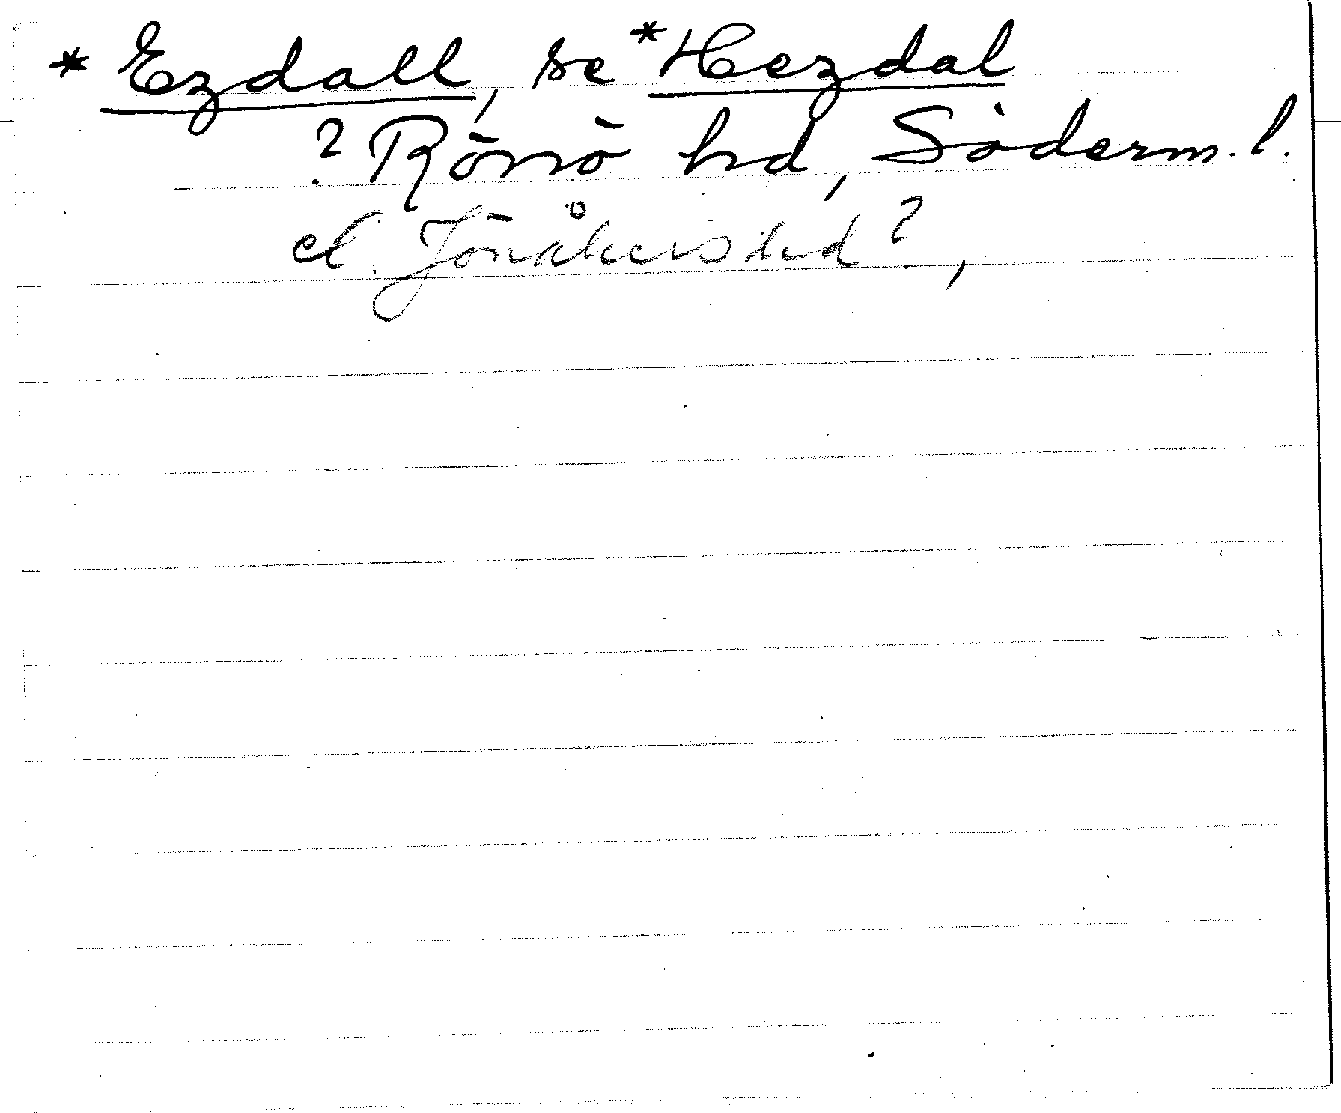 * Ezdall, se *Hezdal
? Rönö hd, Söderm. l.
el. Jönåkers hd?,